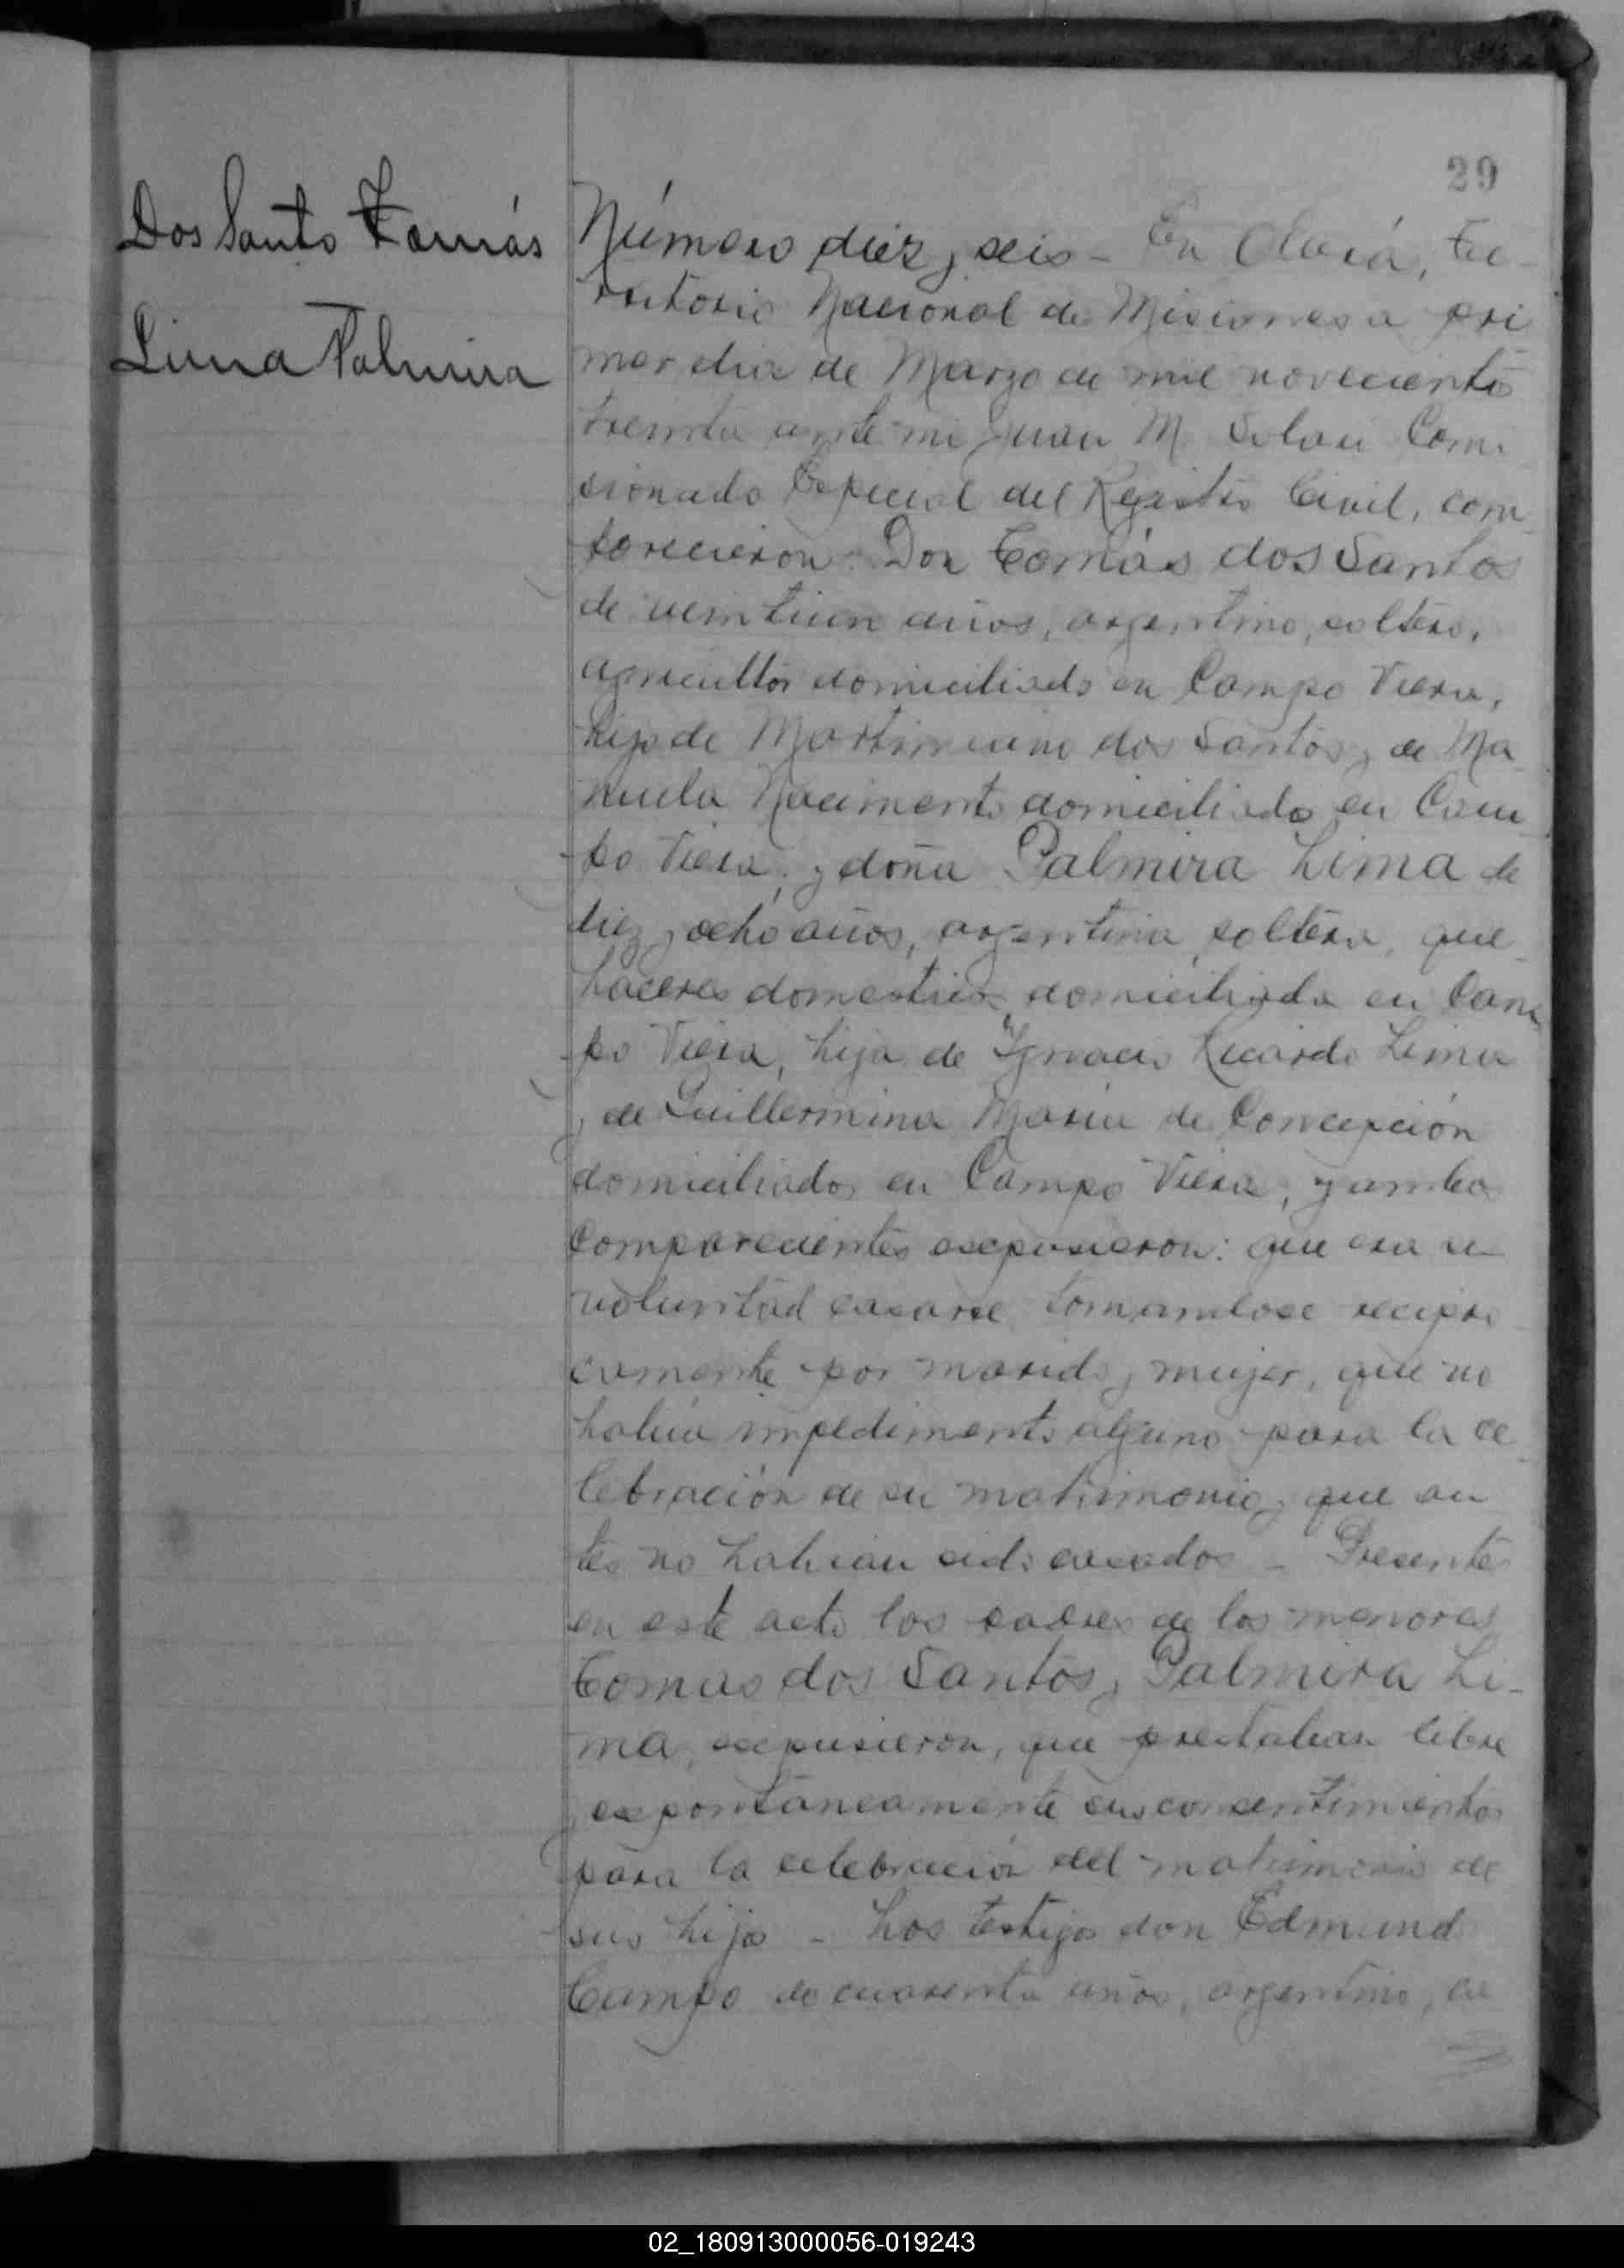 29
Dos Santo Tomás
Lima Palmira
Número diez y seis - En Oberá, Te-
rritorio Nacional de Misiones a pri
mer dia de Marzo de mil novecientos
treinta ante mi Juan M. Solari Comi
sionado Especial del Registro Civil, com
parecieron: Don Tomás dos Santos
de veintiun años, argentino, soltero,
agricultor domiciliado en Campo Viera,
hijo de Martimiano dos Santos y de Ma
nuela Nacimento domiciliado en Cam
po Viera, y doña Palmira Lima de
diez y ocho años, argentina, soltera, que
haceres domesticos domiciliada en Cam
po Viera, hija de Ygnacio Ricardo Lima
y de Guillermina Maria de Concepción
domiciliados en Campo Viera, y ambos
comparecientes expusieron: que era su
voluntad casarse tomandose recipro
camente por marido y mujer, que no
habia impedimento alguno para la ce
lebración de su matrimonio y que an
tes no habian sido casados - Presentes
en este acto los padres de los menores
Tomas dos Santos y Palmira Li-
ma, expusieron, que prestaban libre
y expontáneamente sus consentimientos
para la celebración del matrimonio de
sus hijos - Los testigos don Edmundo
Campo de cuarenta años, argentino, ca
02_180913000056-019243